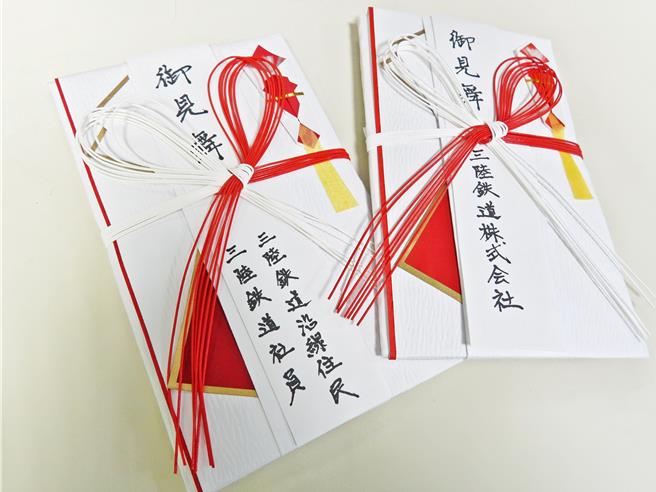 御見舞
三陸鉄道沿線住民
三陸鉄道社員
御見舞
三陸鉄道株式会社